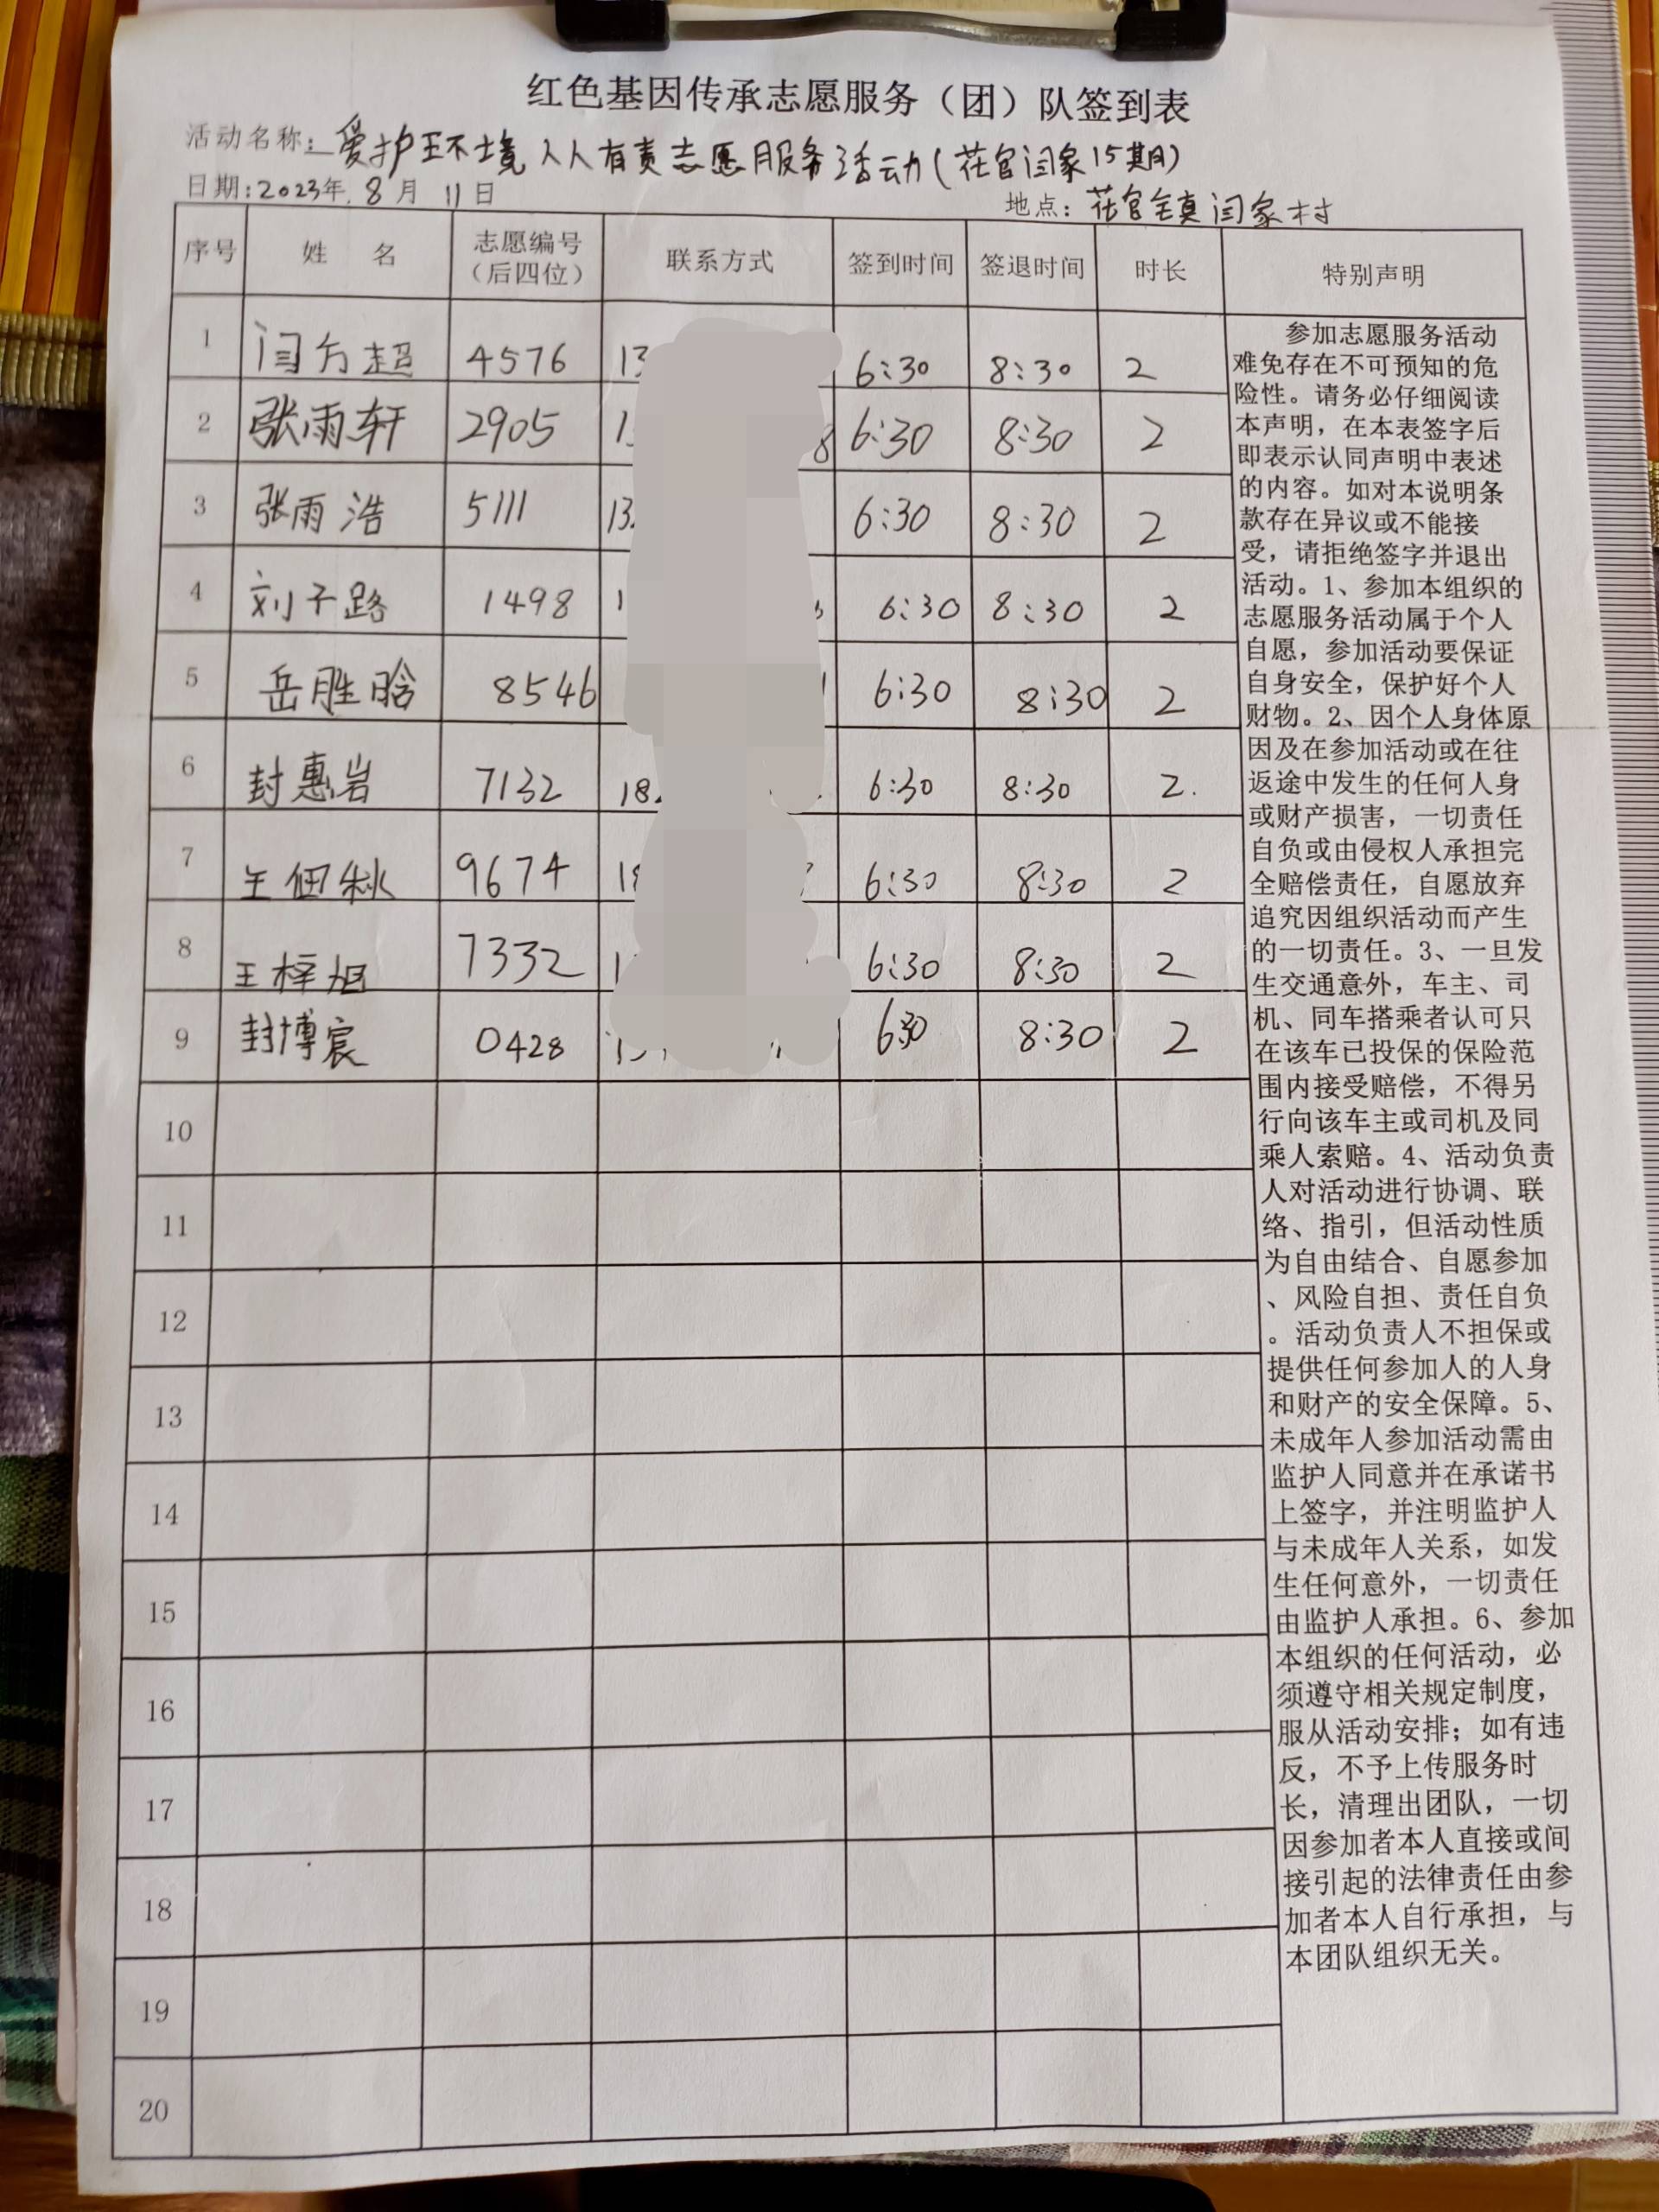 红色基因传承志愿服务（团）队签到表
活动名称：爱护环境人人有责志愿服务活动(花官闫家15期)
日期:2023年.8月 11日 地点：花官镇闫家村
序号 姓 名 志愿编号（后四位） 联系方式 签到时间 签退时间 时长 特别声明
1 闫方超 4576 13 6:30 8:30 2
2 张雨轩 2905 1 8 6:30 8:30 2
3 张雨浩 5111 13 6:30 8:30 2
4 刘子路 1498 1 6:30 8:30 2
5 岳胜晗 8546 1 6:30 8:30 2
6 封惠岩 7132 18 6:30 8:30 2.
7 王佃秋 9674 18 6:30 8:30 2
8 王梓旭 7332 1 6:30 8:30 2
9 封博宸 0428 6:30 8:30 2
10
11
12
13
14
15
16
17
18
19
20
参加志愿服务活动
难免存在不可预知的危
险性。请务必仔细阅读
本声明，在本表签字后
即表示认同声明中表述
的内容。如对本说明条
款存在异议或不能接
受，请拒绝签字并退出
活动。1、参加本组织的
志愿服务活动属于个人
自愿，参加活动要保证
自身安全，保护好个人
财物。2、因个人身体原
因及在参加活动或在往
返途中发生的任何人身
或财产损害，一切责任
自负或由侵权人承担完
全赔偿责任，自愿放弃
追究因组织活动而产生
的一切责任。3、一旦发
生交通意外，车主、司
机、同车搭乘者认可只
在该车已投保的保险范
围内接受赔偿，不得另
行向该车主或司机及同
乘人索赔。4、活动负责
人对活动进行协调、联
络、指引，但活动性质
为自由结合、自愿参加
、风险自担、责任自负
。活动负责人不担保或
提供任何参加人的人身
和财产的安全保障。5、
未成年人参加活动需由
监护人同意并在承诺书
上签字，并注明监护人
与未成年人关系，如发
生任何意外，一切责任
由监护人承担。6、参加
本组织的任何活动，必
须遵守相关规定制度，
服从活动安排；如有违
反，不予上传服务时
长，清理出团队，一切
因参加者本人直接或间
接引起的法律责任由参
加者本人自行承担，与
本团队组织无关。